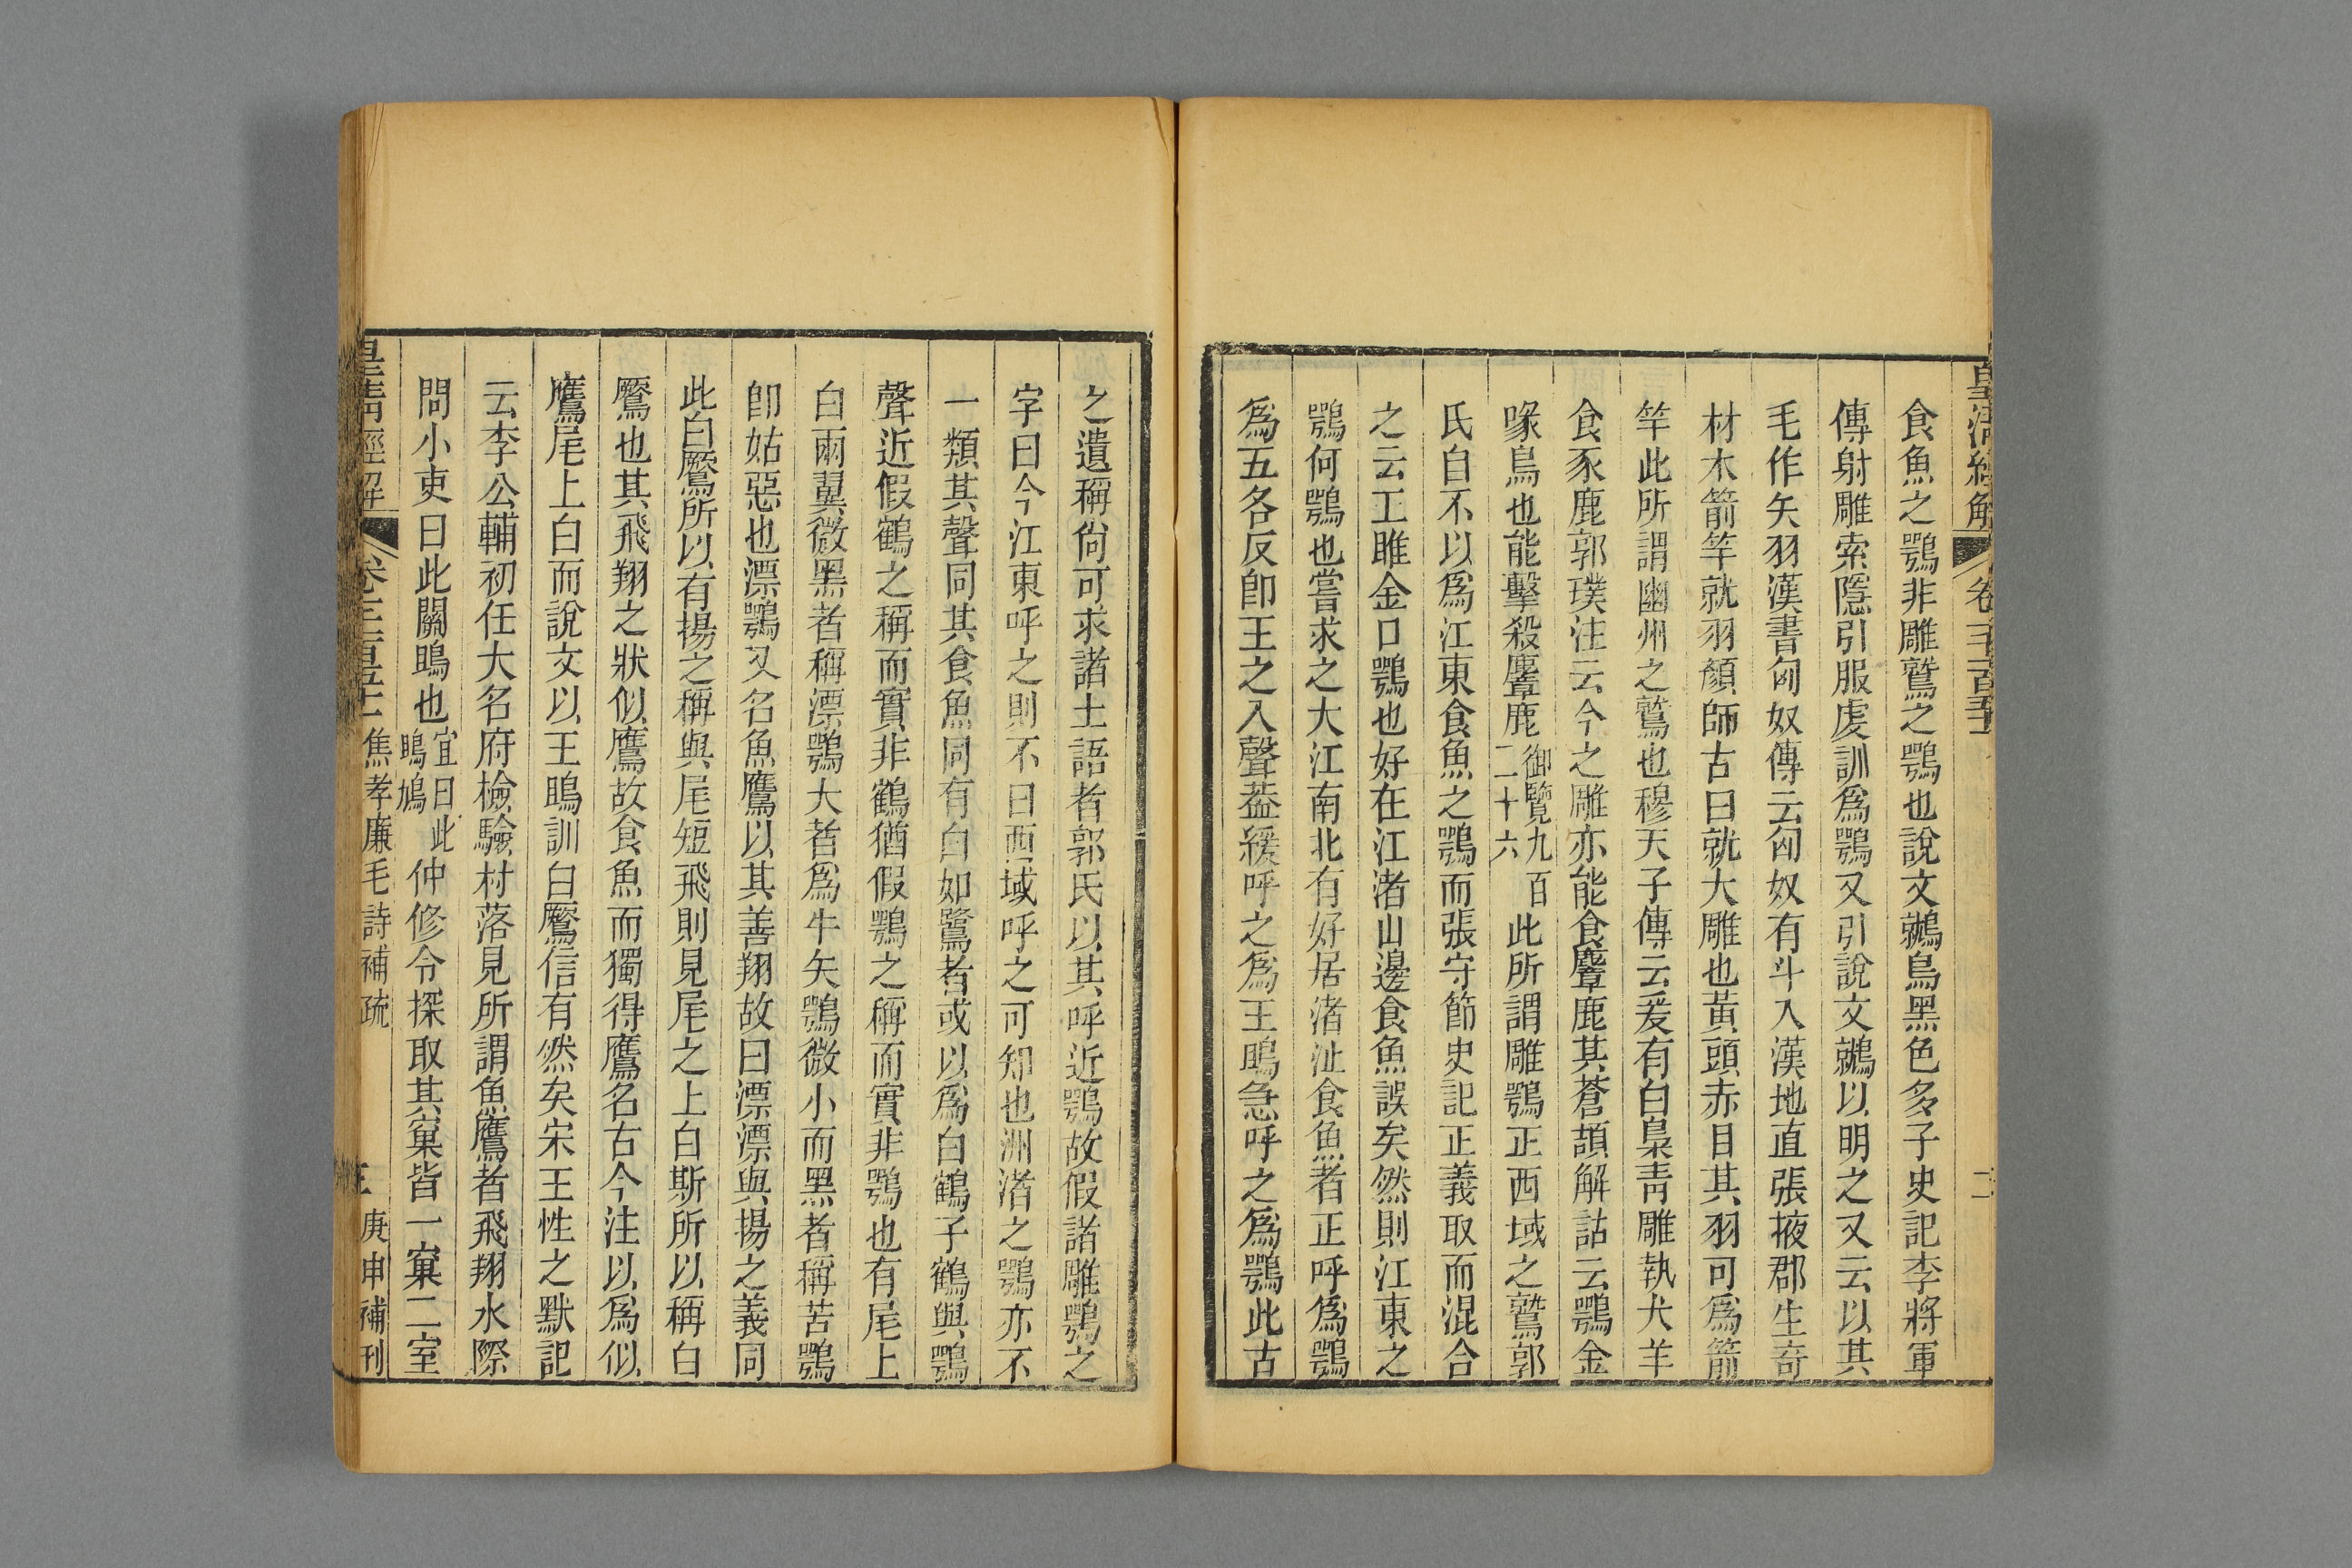 皇清經解
卷千一百五十一
二
食魚之鶚非雕鷲之鶚也說文鷻鳥黑色多子史記李將軍
傳射雕索隱引服虔訓爲鶚又引說文鷻以明之又云以其
毛作矢羽漢書匈奴傳云匈奴有斗入漢地直張掖郡生奇
材木箭竿就羽顏師古曰就大雕也黃頭赤目其羽可爲箭
竿此所謂幽州之鷲也穆天子傳云爰有白梟靑雕執犬羊
食豕鹿郭璞注云今之雕亦能食麞鹿其蒼頡解詁云鶚金
喙鳥也能擊殺麞鹿御覽九百二十六此所謂雕鶚正西域之鷲郭
氏自不以爲江東食魚之鶚而張守節史記正義取而混合
之云王雎金口鶚也好在江渚山邊食魚誤矣然則江東之
鶚何鶚也嘗求之大江南北有好居渚沚食魚者正呼爲鶚
爲五各反卽王之入聲葢緩呼之爲王鴡急呼之爲鶚此古
之遺稱尙可求諸土語者郭氏以其呼近鶚故假諸雕鶚之
字曰今江東呼之則不曰西域呼之可知也洲渚之鶚亦不
一類其聲同其食魚同有白如鷺者或以爲白鶴子鶴與鶚
聲近假鶴之稱而實非鶴猶假鶚之稱而實非鶚也有尾上
白兩翼微黑者稱漂鶚大者爲牛矢鶚微小而黑者稱苦鶚
卽姑惡也漂鶚又名魚鷹以其善翔故曰漂漂與揚之義同
此白鷢所以有揚之稱與尾短飛則見尾之上白斯所以稱白
鷢也其飛翔之狀似鷹故食魚而獨得鷹名古今注以爲似
鷹尾上白而說文以王鴡訓白鷢信有然矣宋王性之默記
云李公輔初任大名府檢驗村落見所謂魚鷹者飛翔水際
問小吏曰此關鴡也宜曰此鴡鳩仲修令探取其窠皆一窠二室
皇清經解
焦孝廉毛詩補疏
庚申補刊